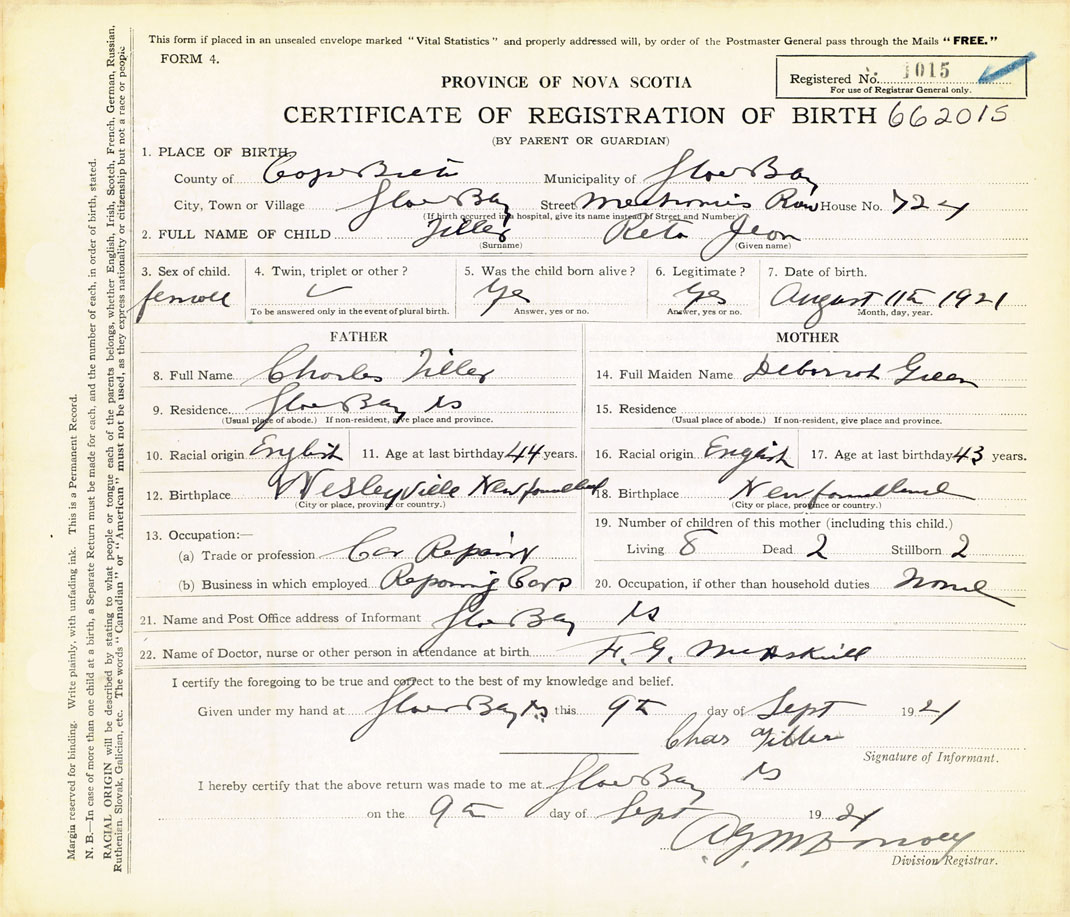 This form if placed in an unsealed envelope marked "Vital Statistics" and properly addressed will, by order of the Postmaster General pass through the Mails "FREE."
FORM 4.
Registered No. 1015
For use of Registrar General only.
PROVINCE OF NOVA SCOTIA
CERTIFICATE OF REGISTRATION OF BIRTH 662015
(BY PARENT OR GUARDIAN)
1. PLACE OF BIRTH
County of Cape Breton Municipality of Glace Bay
City, Town or Village Glace Bay Street Row House No. 724
(If birth occurred in a hospital, give its name instead of Street and Number)
2. FULL NAME OF CHILD Tiller Reta Jean
(Surname) (Given name)
3. Sex of child. 4. Twin, triplet or other? 5. Was the child born alive? 6. Legitimate? 7. Date of birth.
female Yes Yes August 11th 1921
To be answered only in the event of plural birth. Answer, yes or no. Answer, yes or no. Month, day, year.
FATHER MOTHER
8. Full Name Charles Tiller 14. Full Maiden Name Deborah Green
9. Residence Glace Bay NS 15. Residence
(Usual place of abode.) If non-resident, give place and province. (Usual place of abode.) If non-resident, give place and province.
10. Racial origin English 11. Age at last birthday 44 years. 16. Racial origin English 17. Age at last birthday 43 years.
12. Birthplace Wesleyville Newfoundland 18. Birthplace Newfoundland
(City or place, province or country.) (City or place, province or country.)
13. Occupation:— 19. Number of children of this mother (including this child.)
(a) Trade or profession Car Living 8 Dead 2 Stillborn 2
(b) Business in which employed Repairing Cars 20. Occupation, if other than household duties None
21. Name and Post Office address of Informant Glace Bay NS
22. Name of Doctor, nurse or other person in attendance at birth
I certify the foregoing to be true and correct to the best of my knowledge and belief.
Given under my hand at Glace Bay NS this 9th day of Sept 1921
Chas Tiller
Signature of Informant.
I hereby certify that the above return was made to me at Glace Bay NS
on the 9th day of Sept 1921
Division Registrar.
Margin reserved for binding. Write plainly, with unfading ink. This is a Permanent Record.
N. B.—In case of more than one child at a birth, a Separate Return must be made for each, and the number of each, in order of birth, stated.
RACIAL ORIGIN will be described by stating to what people or tongue each of the parents belongs, whether English, Irish, Scotch, French, German, Russian,
Ruthenian, Slovak, Galician, etc. The words "Canadian" or "American" must not be used, as they express nationality or citizenship but not a race or people